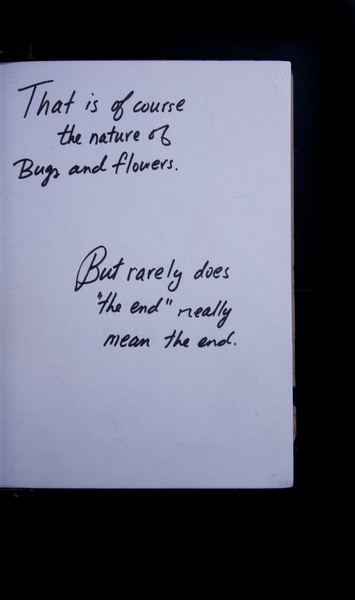 That is of course
the nature of
Bugs and flowers.
But rarely does
"the end" really
mean the end.